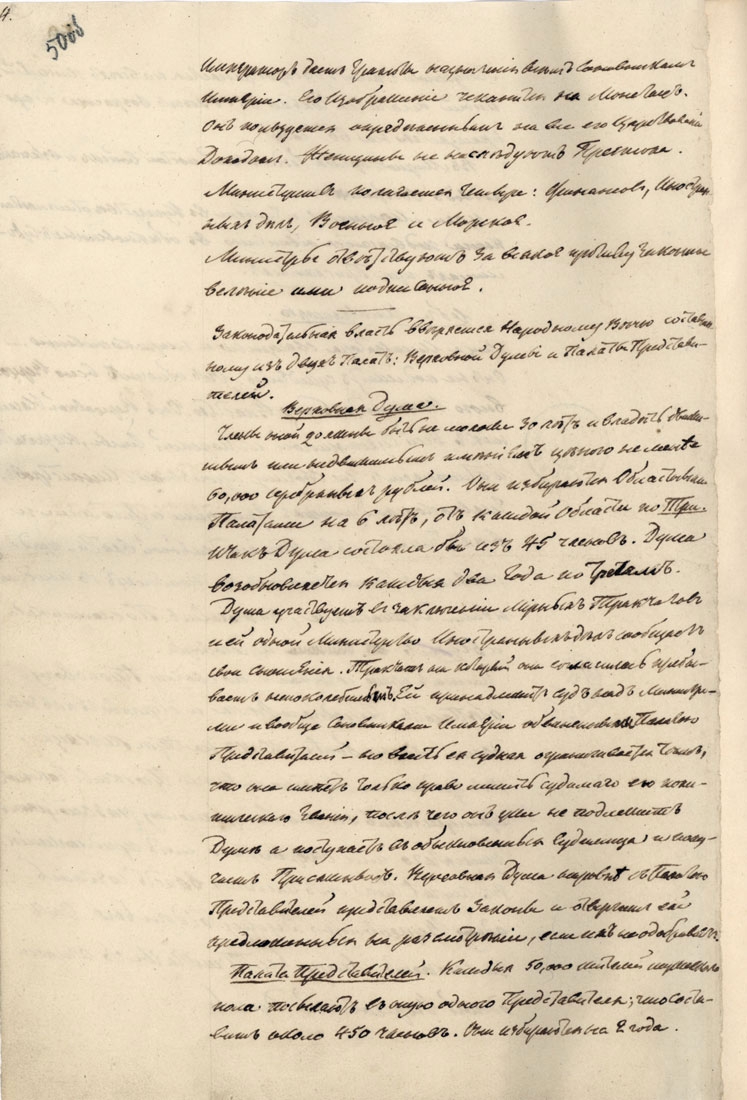 4.
500б
Императоръ даетъ Грамоты на
Имперіи. Его изображеніе чеканится на Монетахъ.
Онъ пользуется опредѣленнымъ на все его Царствованіе
Доходомъ. Женщины не наслѣдуютъ Престола.
Министерствъ полагается четыре: Финансовъ, Иностран-
ныхъ дѣлъ, Военное и Морское.
Министры отвѣтствуютъ за всякое противузаконное
веленіе ими подписанное.
Законодательная власть ввѣряется Народному Вѣчью составлен-
ному изъ двухъ Палатъ: Верховной Думы и Палаты Представи-
телей.
Верховная Дума.
Члены оной должны быть не моложе 30 лѣтъ и владѣть движи-
мымъ или недвижимымъ имѣніемъ цѣною не менѣе
60,000 серебряныхъ рублей. Они избираются Областными
Палатами на 6 лѣтъ, отъ каждой Области по Три.
И такъ Дума состояла бы изъ 45 членовъ. Дума
возобновляется каждые два года по третямъ.
Дума участвуетъ въ заключеніи Мирныхъ Трактатовъ
и ей одной Министерство Иностранныхъ дѣлъ сообщаетъ
свои сношенія. Трактатъ на который она согласилась пребы-
ваетъ непоколебимымъ. Ей принадлежитъ судъ надъ Министра-
ми и вообще Сановниками Имперіи обвиненными Палатою
Представителей – но власть ея судная ограничивается темъ,
что она имѣетъ только право лишить судимаго ею поли-
тическаго званія, послѣ чего онъ уже не подлежитъ
Думѣ а поступаетъ въ обыкновенныя Судилища и полу-
чаетъ Присяжныхъ. Верховная Дума наровнѣ съ Палатою
Представителей представляетъ Законы и отвергаетъ ей
предложенные на разсмотреніи, если ихъ не одобряетъ.
Палата Представителей. Каждыя 50,000 жителей мужескаго
пола посылаютъ въ оную одного Представителя; что соста-
витъ около 450 членовъ. Они избираются на 2 года.